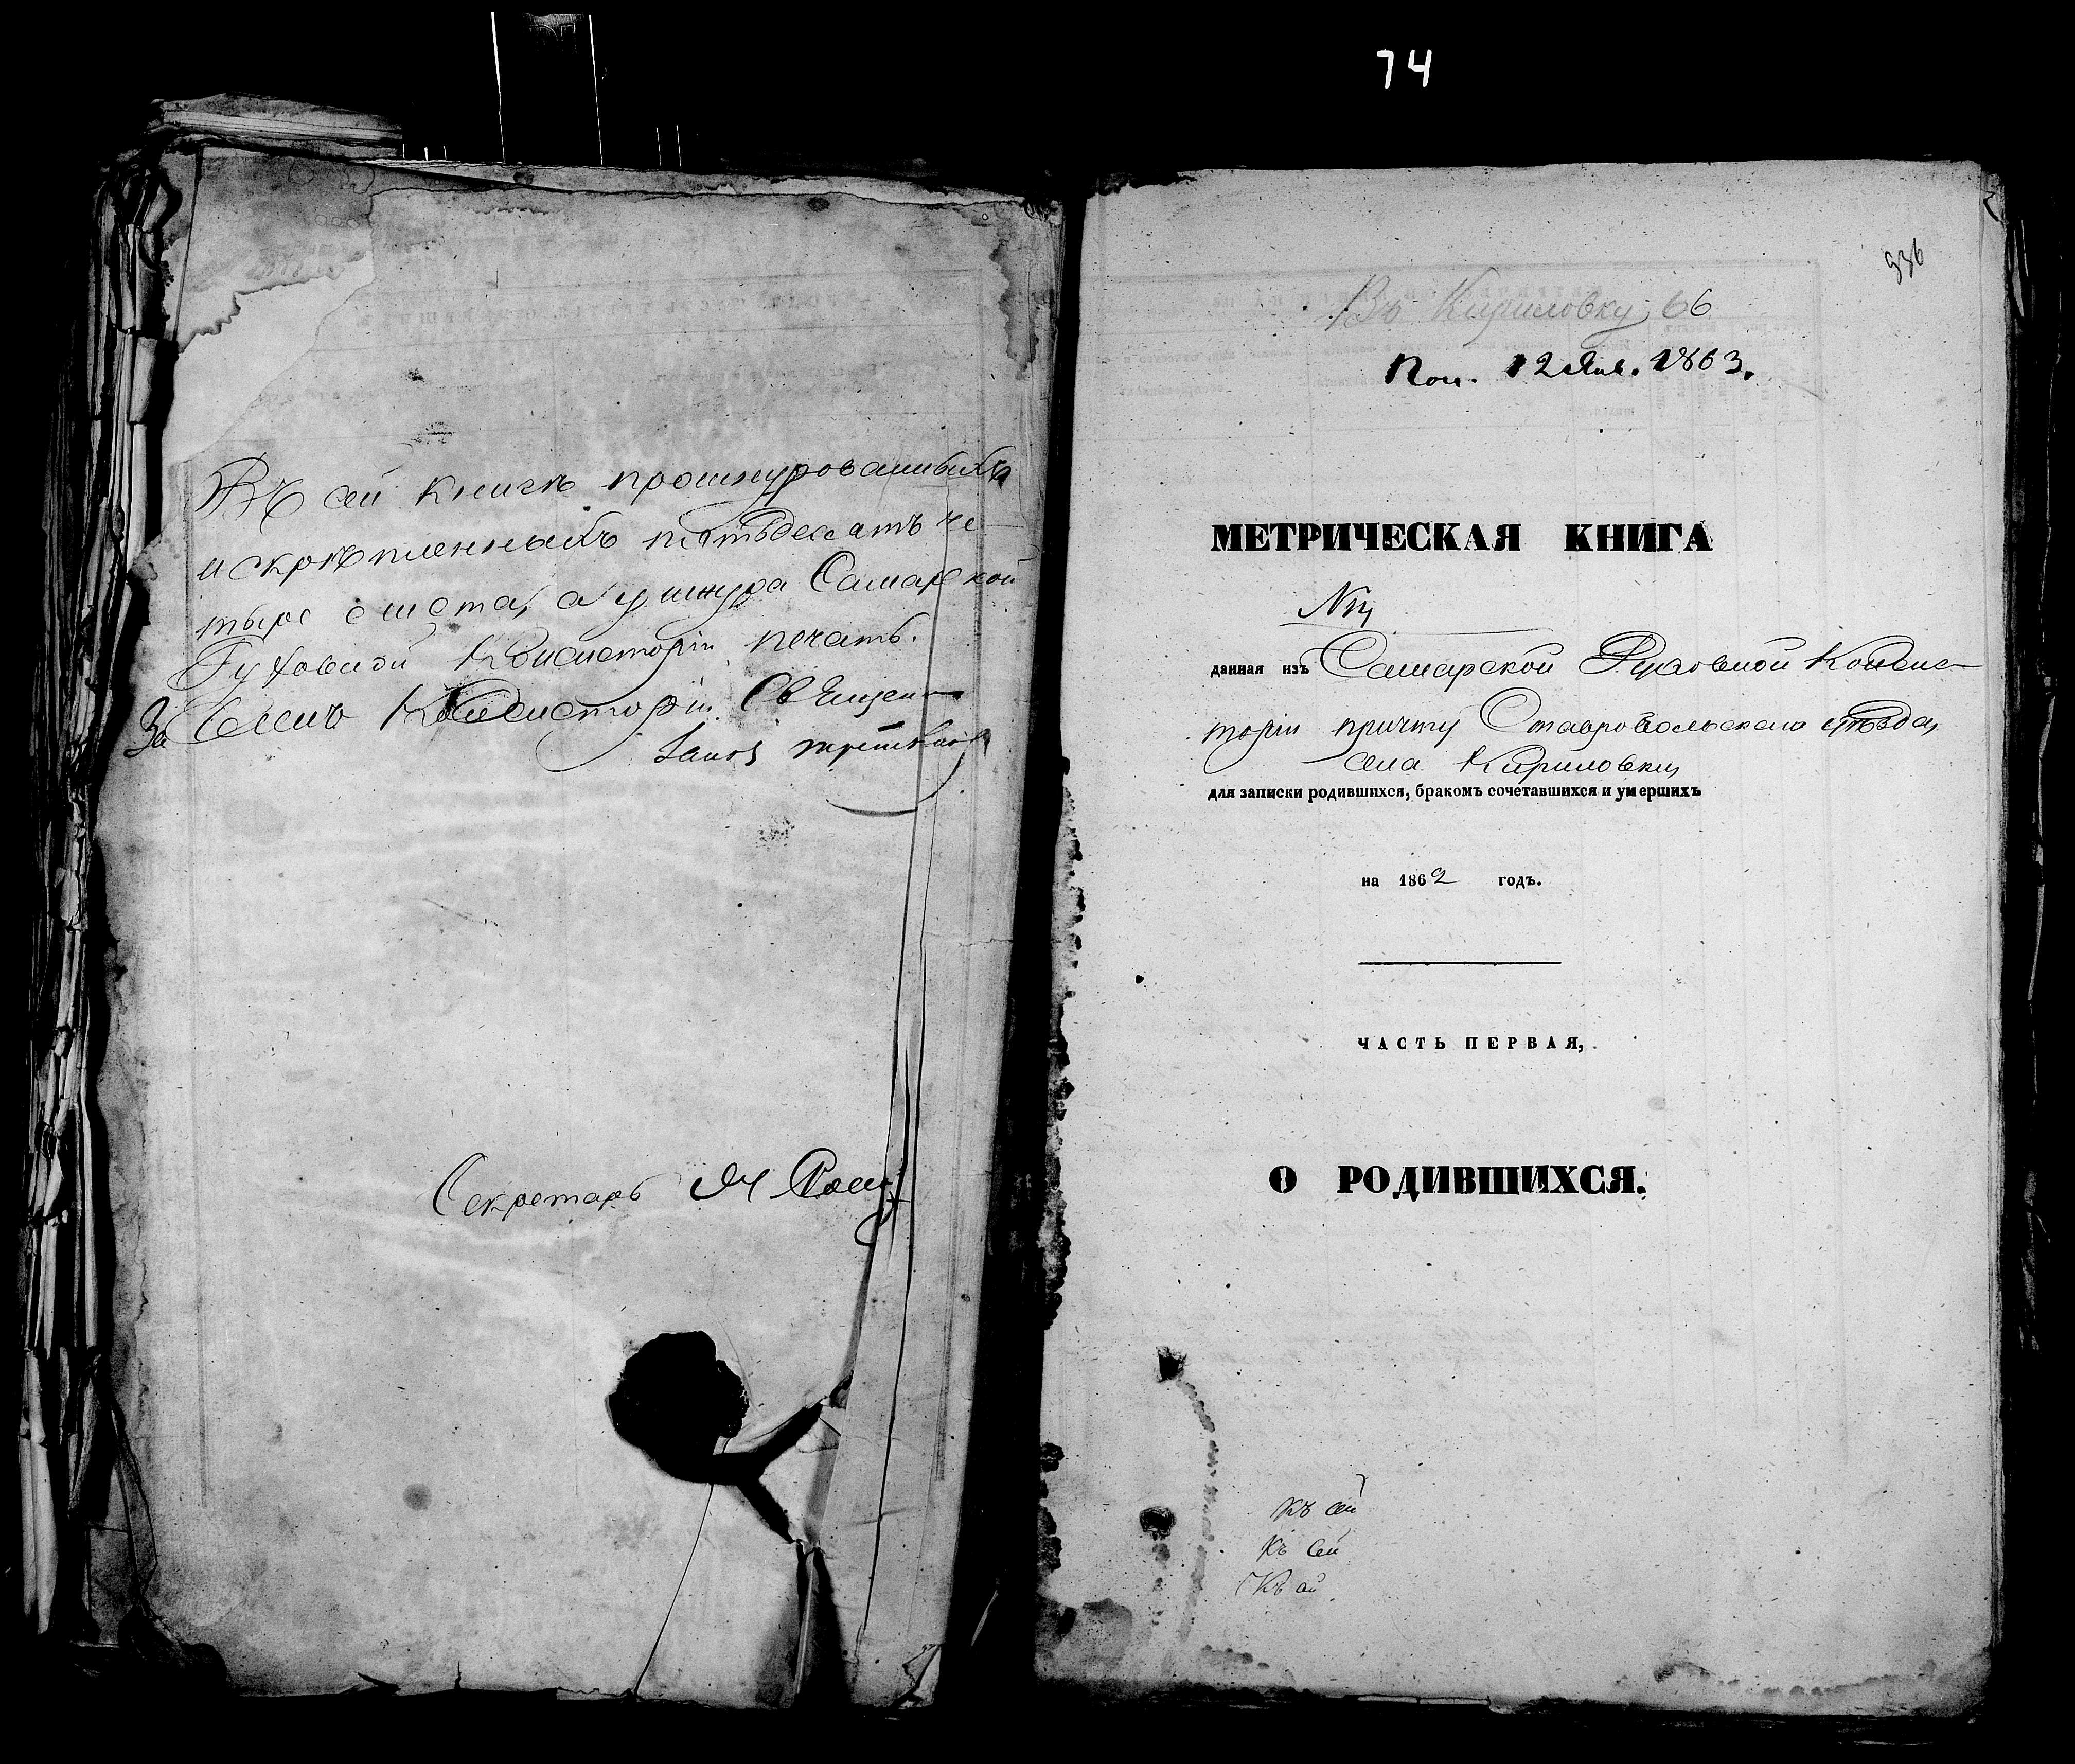 74
Въ сей книгѣ прошнурованныхъ
и скрѣпленныхъ пятьдесятъ че-
тыре листа, а у шнура Самарской
Духовной Консисторіи печать.
За Членъ Консисторіи Священ
Секретарь
336
Въ Кириловку 66
Пол. 12 Янв. 1863.
МЕТРИЧЕСКАЯ КНИГА
данная изъ Самарской Духовной Консис-
торіи причту Ставропольскаго уѣзда,
села Кириловки
для записки родившихся, бракомъ сочетавшихся и умершихъ
на 1862 годъ.
ЧАСТЬ ПЕРВАЯ,
О РОДИВШИХСЯ.
Къ сей
Къ сей
Къ сей